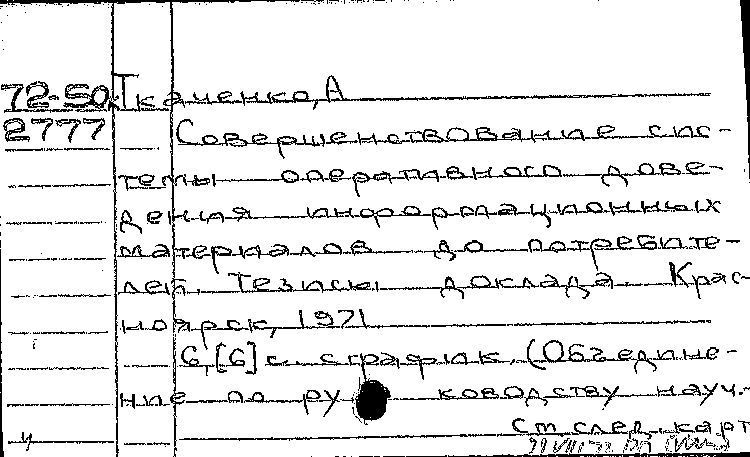 72-50 Ткаченко, А
2777 Совершенствование сис-
темы оперативного дове-
дения информационных
материалов до потребите-
лей. Тезисы доклада. Крас-
ноярск, 1971
6,[6] с. с график. (Объедине-
ние по руководству науч.-
См след. карт